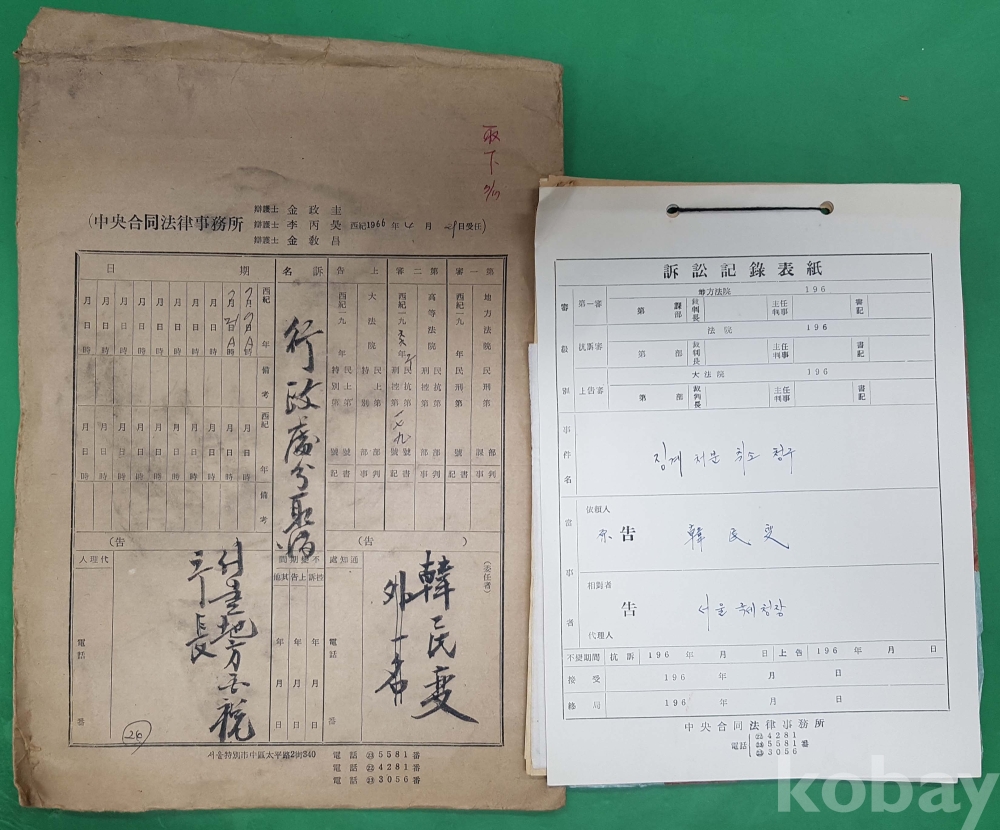 取下
中央合同法律事務所
辯護士 金政圭
辯護士 李丙昊
辯護士 金敎昌
西紀1966年 月 日受任)
第一審 地方法院 民刑第 號 部 課 判事 書記
西紀一九 年
第二審 高等法院 民抗第 刑控第 號 部 判事 書記
西紀一九 年
上告 大法院 民上第 特別第 號 部 判事 書記
西紀一九 年 特別
訴名
行政處分取消
期日
西紀 年 備考
月 日 時
西紀 年 備考
月 日 時
(告)
(委任者)
韓民燮
外一名
通知處
電話 番
不變期間
控訴 上告 其他
年 月 日
(告
서울地方國稅
廳長
代理人
電話 番
26
서울特別市中區太平路2街340
電話 ㉒5581番
電話 ㉒4281番
電話 ㉓3056番
訴訟記錄表紙
審級別
第一審 地方法院 196
第 課部 裁判長 主任判事 書記
抗訴審 法院 196
第 部 裁判長 主任判事 書記
上告審 大法院 196
第 部 裁判長 主任判事 書記
事件名 징계처분 취소 청구
當事者
依頼人
原告 韓民燮
相對者
告 서울 국세청장
代理人
不變期間 抗訴 196 年 月 日 上告 196 年 月 日
接受 196 年 月 日
終局 196 年 月 日
中央合同法律事務所
電話 ㉒4281
㉒5581番
㉓3056
kobay